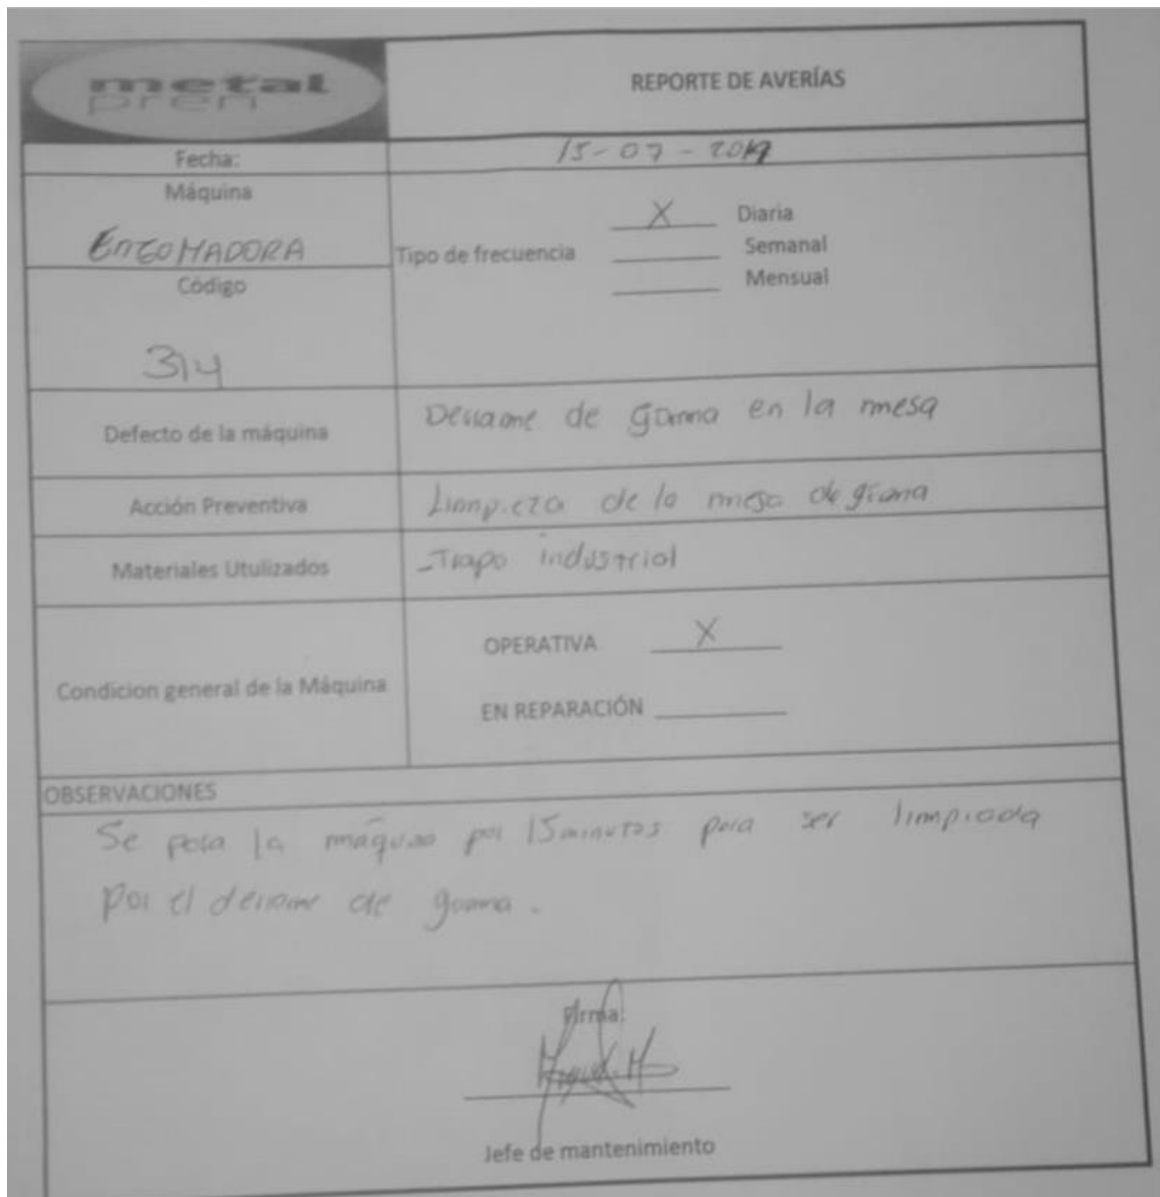 metal
pren
REPORTE DE AVERÍAS
Fecha:
15-07-2019
Máquina
ENGOMADORA
Código
314
Tipo de frecuencia
X Diaria
Semanal
Mensual
Defecto de la máquina
Derrame de goma en la mesa
Acción Preventiva
Limpieza de la mesa de goma
Materiales Utulizados
-Trapo industrial
Condicion general de la Máquina
OPERATIVA X
EN REPARACIÓN
OBSERVACIONES
Se para la máquina por 15 minutos para ser limpiada
por el derrame de goma.
Firma:
Jefe de mantenimiento